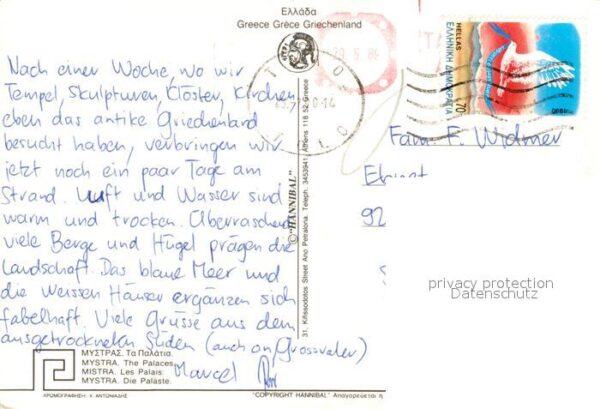 Ελλάδα
Greece Grèce Griechenland
Nach einer Woche, wo wir
Tempel, Skulpturen, Klöster, Kirchen
eben das antike Griechenland
besucht haben, verbringen wir
jetzt noch ein paar Tage am
Strand. Luft und Wasser sind
warm und trocken. Überraschend
viele Berge und Hügel prägen die
Landschaft. Das blaue Meer und
die weissen Häuser ergänzen sich
fabelhaft. Viele Grüsse aus dem
ausgetrockneten Süden (auch an Grossvater)
Marcel
ΜΥΣΤΡΑΣ. Τα Παλάτια.
MYSTRA. The Palaces.
MISTRA. Les Palais.
MYSTRA. Die Paläste.
ΧΡΩΜΟΓΡΑΦΗΣΗ: Χ. ΑΝΤΩΝΙΑΔΗΣ
"COPYRIGHT HANNIBAL" Απαγορεύεται η
© "HANNIBAL"
31, Kifissodotos Street Ano Petralona. Teleph. 3453941, Athens 118 52 Greece
HELLAS
ΕΛΛΗΝΙΚΗ ΔΗΜΟΚΡΑΤΙΑ
70
Fam. F. Widmer
92
privacy protection
Datenschutz